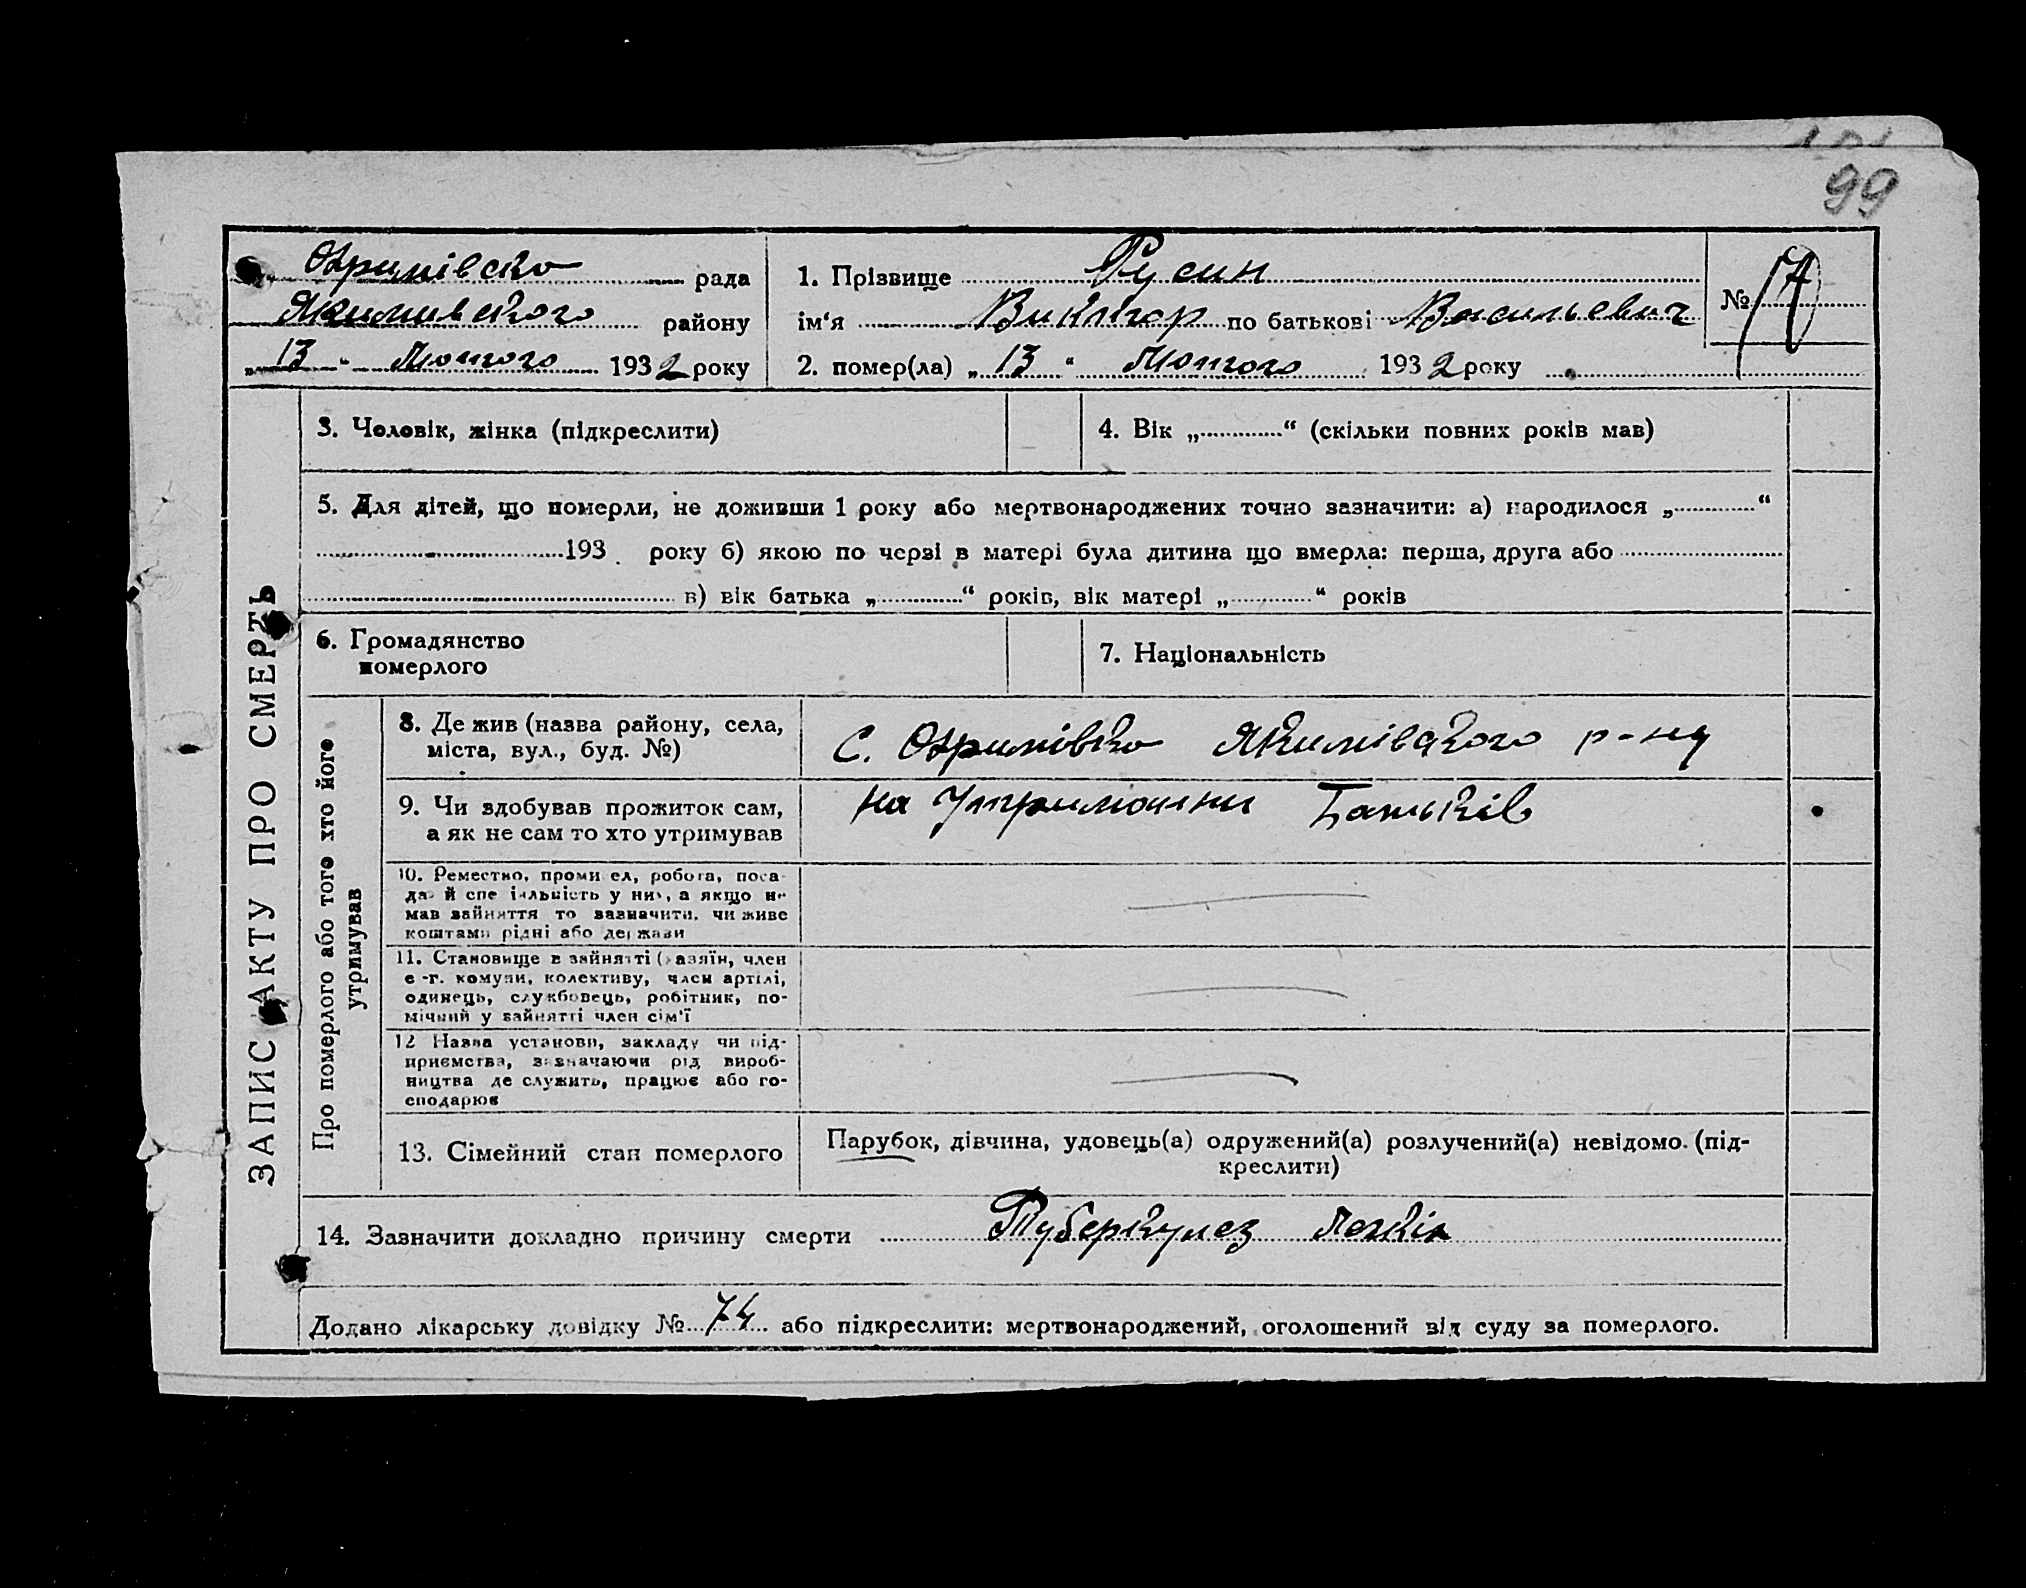 99
Охрімівсько рада
Якимивського району
„13“ Лютого 1932 року
1. Прізвище Русин
ім‘я Виктор по батькові Васильевич
№
2. помер(ла) „13“ Лютого 1932 року
ЗАПИС АКТУ ПРО СМЕРТЬ
3. Чоловік, жінка (підкреслити)
4. Вік „............“ (скільки повних років мав)
5. Для дітей, що померли, не доживши 1 року або мертвонароджених точно зазначити: а) народилося „............“
193 . року б) якою по черзі в матері була дитина що вмерла: перша, друга або
в) вік батька „............“ років, вік матері „............“ років
6. Громадянство
померлого
7. Національність
Про померлого або того хто його
утримував
8. Де жив (назва району, села,
міста, вул., буд. №)
с. Охримівко Якимівського р-ну
9. Чи здобував прожиток сам,
а як не сам то хто утримував
на утриманни Батьків
10. Ремество, проми ел, робота, поса-
да й спе іальність у них, а якщо не
мав зайняття то зазначити, чи живе
коштами рідні або держави
11. Становище в зайнятті (хазяїн, член
с-г. комуни, колективу, член артілі,
одинець, службовець, робітник, по-
мічний у зайнятті член сім‘ї
12 Назва установи, закладу чи під-
приємства, зазначаючи рід вироб-
ництва де служить, працює або го-
сподарює
13. Сімейний стан померлого
Парубок, дівчина, удовець(а) одружений(а) розлучений(а) невідомо. (під-
креслити)
14. Зазначити докладно причину смерти Туберкулез
Додано лікарську довідку № 74 або підкреслити: мертвонароджений, оголошений від суду за померлого.